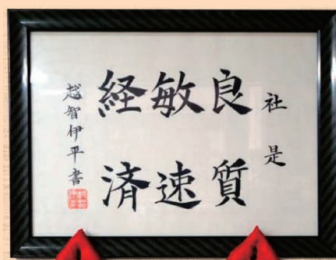 社是
良質
敏速
経済
越智伊平書